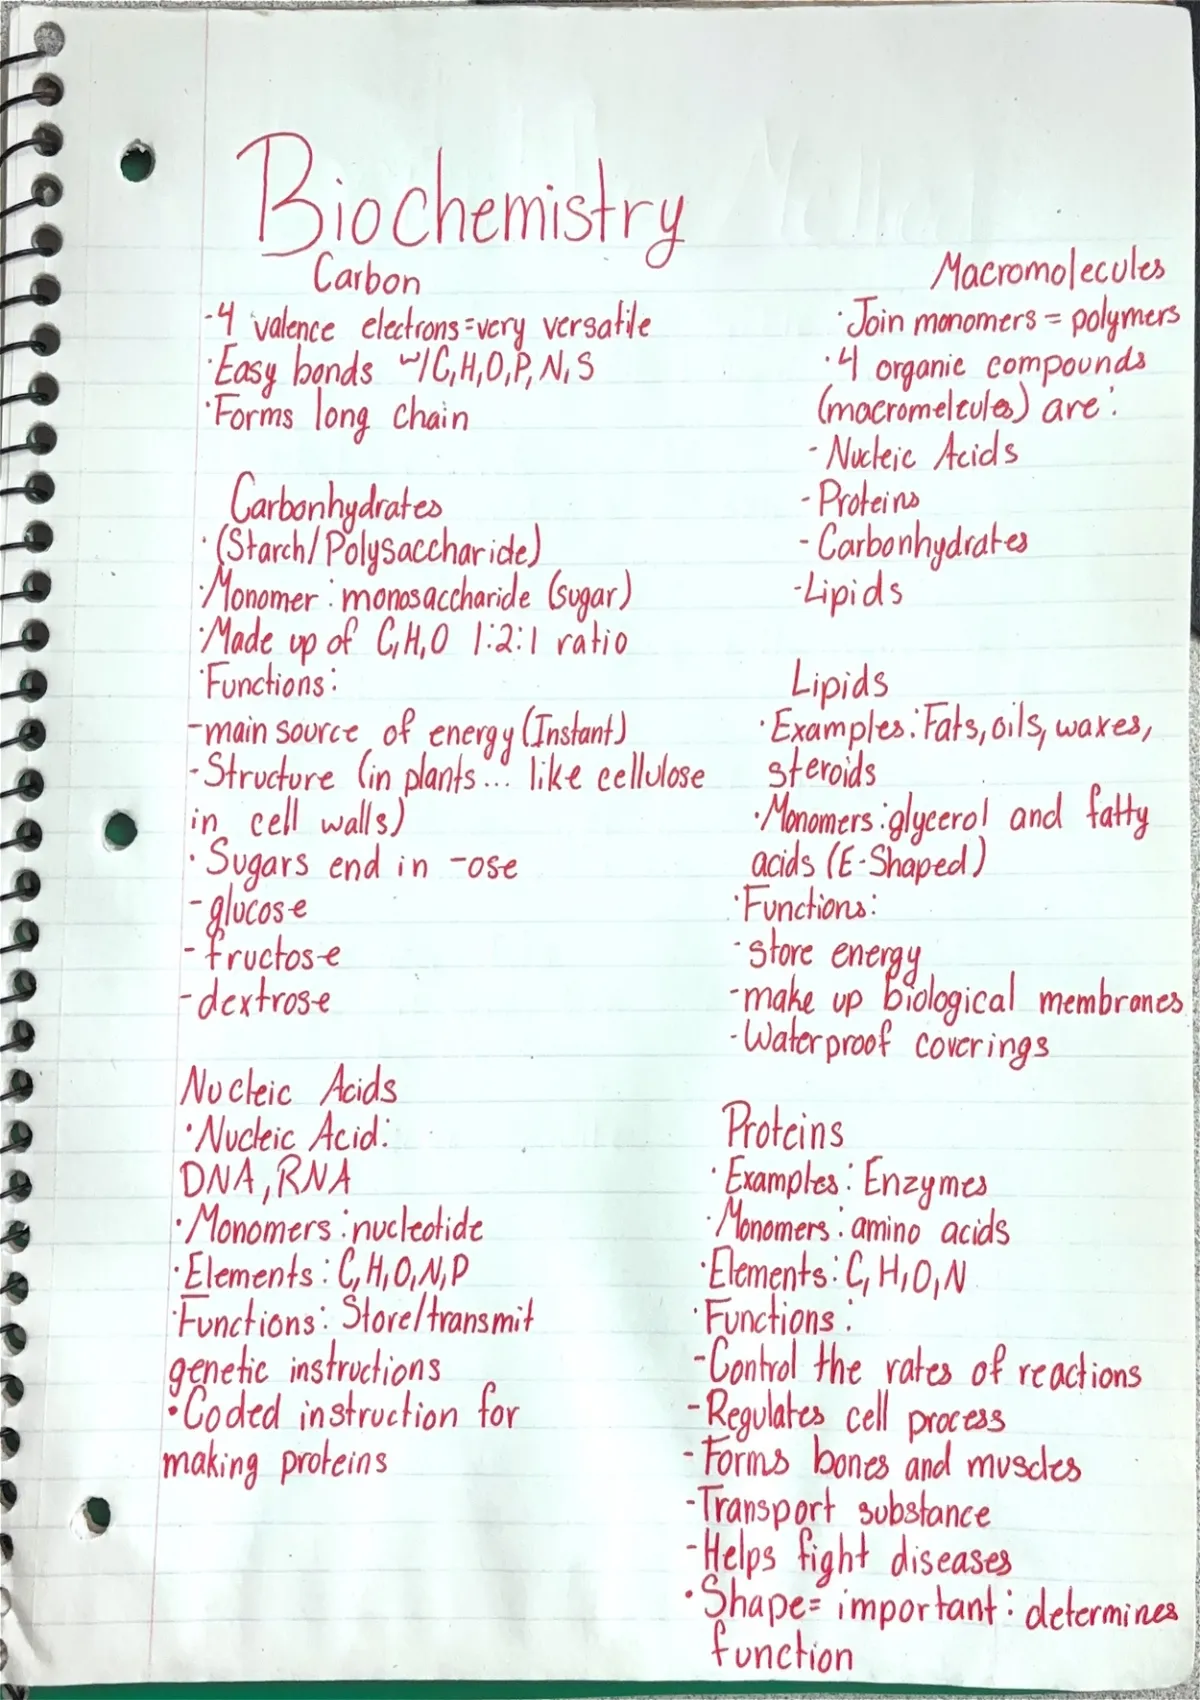 Biochemistry
Carbon
-4 valence electrons=very versatile
·Easy bonds w/C,H,O,P,N,S
·Forms long chain
Carbonhydrates
·(Starch/Polysaccharide)
·Monomer:monosaccharide (sugar)
·Made up of C,H,O 1:2:1 ratio
·Functions:
-main source of energy (Instant)
-Structure (in plants... like cellulose
in cell walls)
·Sugars end in -ose
-glucose
-fructose
-dextrose
Nucleic Acids
·Nucleic Acid:
DNA, RNA
·Monomers:nucleotide
·Elements: C,H,O,N,P
·Functions: Store/transmit
genetic instructions
·Coded instruction for
making proteins
Macromolecules
·Join monomers = polymers
·4 organic compounds
(macromelcules) are:
-Nucleic Acids
-Proteins
-Carbonhydrates
-Lipids
Lipids
·Examples: Fats, oils, waxes,
steroids
·Monomers:glycerol and fatty
acids (E-Shaped)
·Functions:
-store energy
-make up biological membranes
-Waterproof coverings
Proteins
·Examples: Enzymes
·Monomers: amino acids
·Elements: C,H,O,N
·Functions:
-Control the rates of reactions
-Regulates cell process
-Forms bones and muscles
-Transport substance
-Helps fight diseases
·Shape= important: determines
function